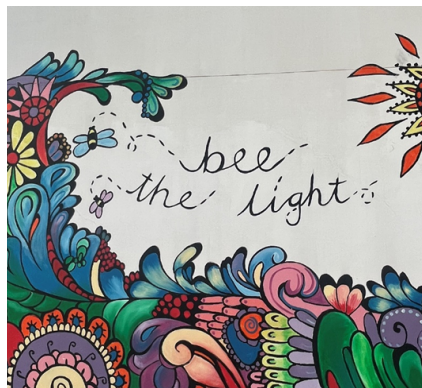 bee
the light